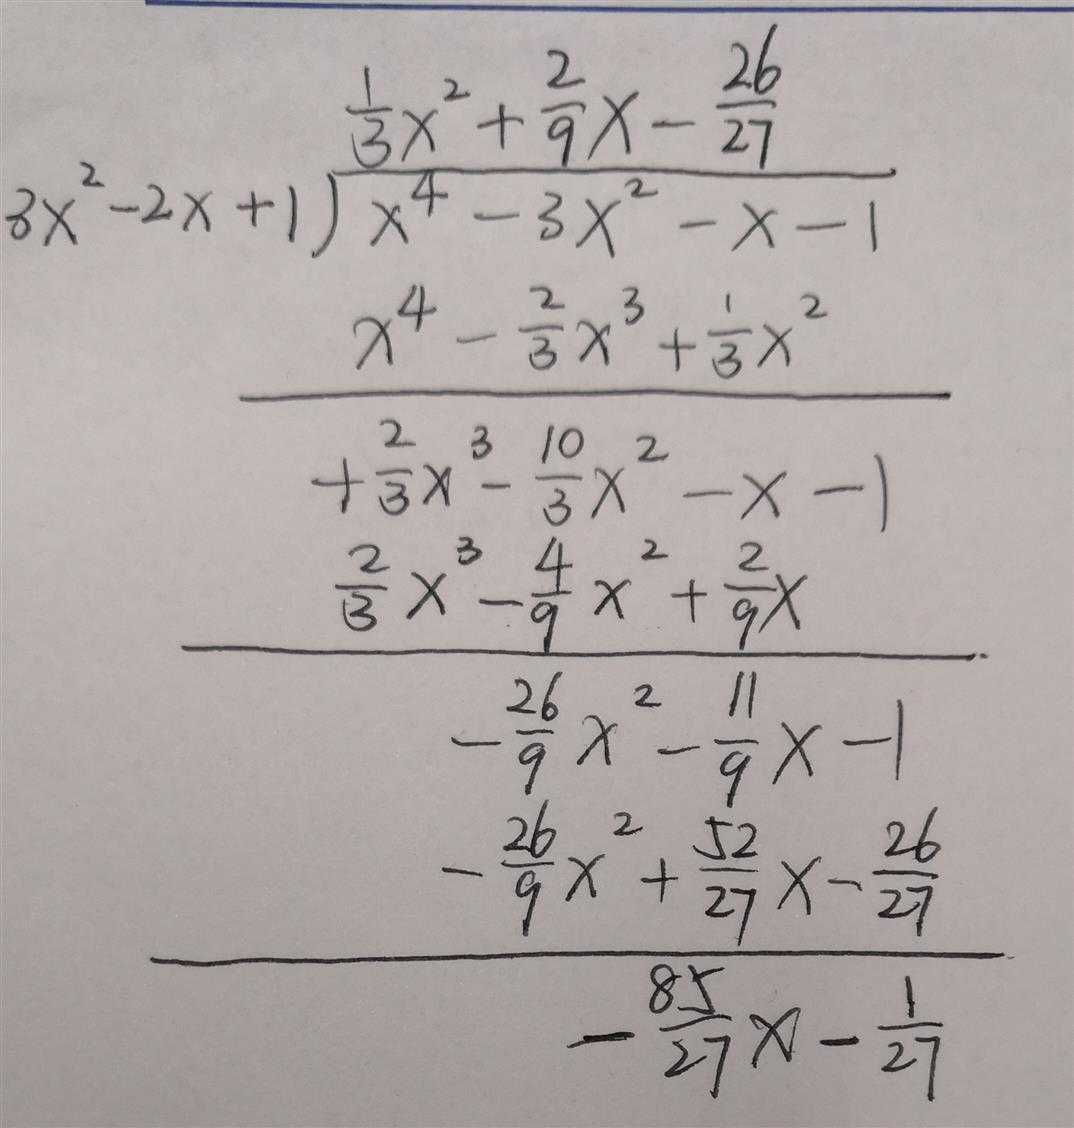 1/3 x² + 2/9 x − 26/27
3x² − 2x + 1 ) x⁴ − 3x² − x − 1
x⁴ − 2/3 x³ + 1/3 x²
+ 2/3 x³ − 10/3 x² − x − 1
2/3 x³ − 4/9 x² + 2/9 x
− 26/9 x² − 11/9 x − 1
− 26/9 x² + 52/27 x − 26/27
− 85/27 x − 1/27